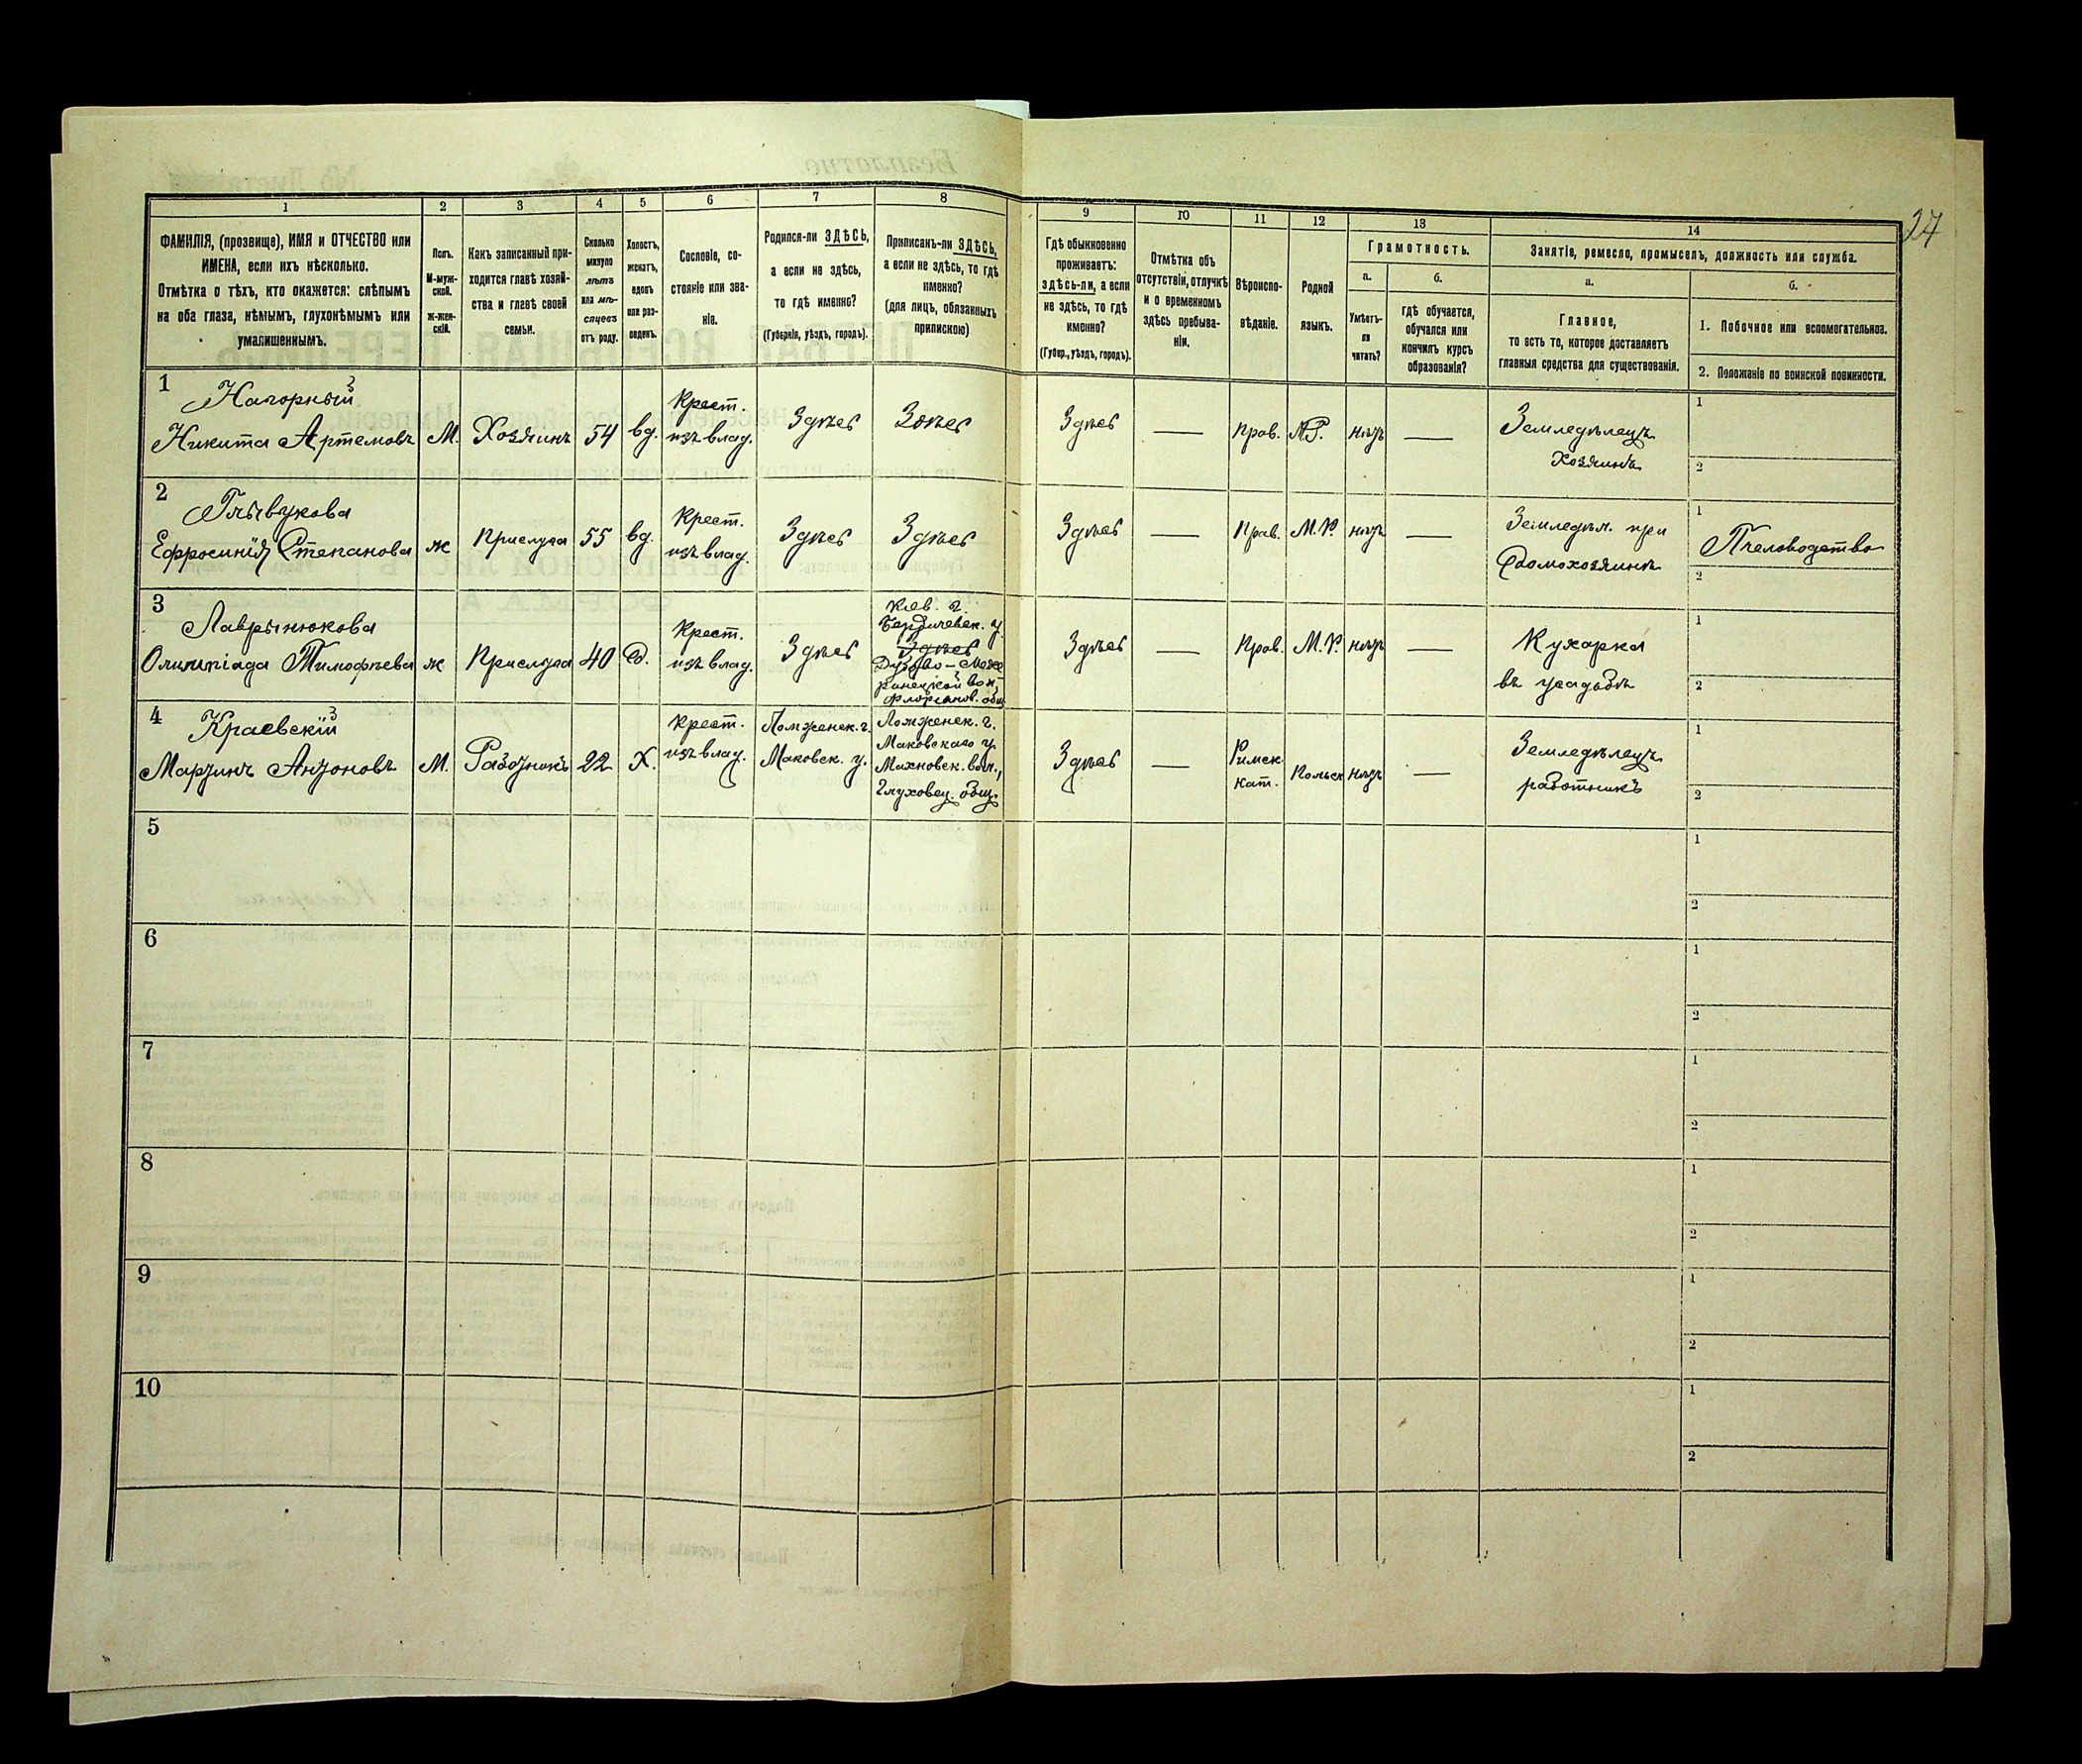 27
1 2 3 4 5 6 7 8 9 10 11 12 13 14
ФАМИЛІЯ, (прозвище), ИМЯ и ОТЧЕСТВО или
ИМЕНА, если ихъ нѣсколько.
Отмѣтка о тѣхъ, кто окажется: слѣпымъ
на оба глаза, нѣмымъ, глухонѣмымъ или
умалишеннымъ.
Полъ.
М-муж-
ской.
ж-жен-
скій.
Какъ записанный при-
ходится главѣ хозяй-
ства и главѣ своей
семьи.
Сколько
минуло
лѣтъ
или мѣ-
сяцевъ
отъ роду.
Холостъ,
женатъ,
вдовъ
или раз-
веденъ.
Сословіе, со-
стояніе или зва-
ніе.
Родился-ли ЗДѢСЬ,
а если не здѣсь,
то гдѣ именно?
(Губернія, уѣздъ, городъ).
Приписанъ-ли ЗДѢСЬ,
а если не здѣсь, то гдѣ
именно?
(для лицъ, обязанныхъ
припискою)
Гдѣ обыкновенно
проживаетъ:
здѣсь-ли, а если
не здѣсь, то гдѣ
именно?
(Губер., уѣздъ, городъ).
Отмѣтка объ
отсутствіи, отлучкѣ
и о временномъ
здѣсь пребыва-
ніи.
Вѣроиспо-
вѣданіе.
Родной
языкъ.
Грамотность.
а.
Умѣетъ-
ли
читать?
б.
гдѣ обучается,
обучался или
кончилъ курсъ
образованія?
Занятіе, ремесло, промыселъ, должность или служба.
а.
Главное,
то есть то, которое доставляетъ
главныя средства для существованія.
б.
1. Побочное или вспомогательное.
2. Положеніе по воинской повинности.
1
Нагорный
Никита Артемовъ
М.
Хозяинъ
54
вд.
Крест.
изъ влад.
Здѣсь
Здѣсь
Здѣсь
—
Прав.
М.Р.
нѣтъ
—
Земледѣлецъ
Хозяинъ
1
2
2
Ефросинія Степанова
ж
Прислуга
55
вд.
Крест.
изъ влад.
Здѣсь
Здѣсь
Здѣсь
—
Прав.
М.Р.
нѣтъ
—
Земледѣл. при
домохозяинѣ
1
Пчеловодство
2
3
Лаврынюкова
Олимпіада Тимофѣева
ж
Прислуга
40
Крест.
изъ влад.
Здѣсь
Кіев. г.
Бердичевск. у.
Здѣсь
Флоріанов. общ
Здѣсь
—
Прав.
М.Р.
нѣтъ
—
Кухарка
въ усадьбѣ
1
2
4
Краевскій
Мартинъ Антоновъ
М.
Работникъ
22
Х.
Крест.
изъ влад.
Ломженск. г.
Маковск. у.
Ломженск. г.
Маковскаго у.
Махновск. вол.,
Глуховец. общ.
Здѣсь
—
Римск.
Кат.
Польск
нѣтъ
—
Земледѣлецъ
работникъ
1
2
5
1
2
6
1
2
7
1
2
8
1
2
9
1
2
10
1
2